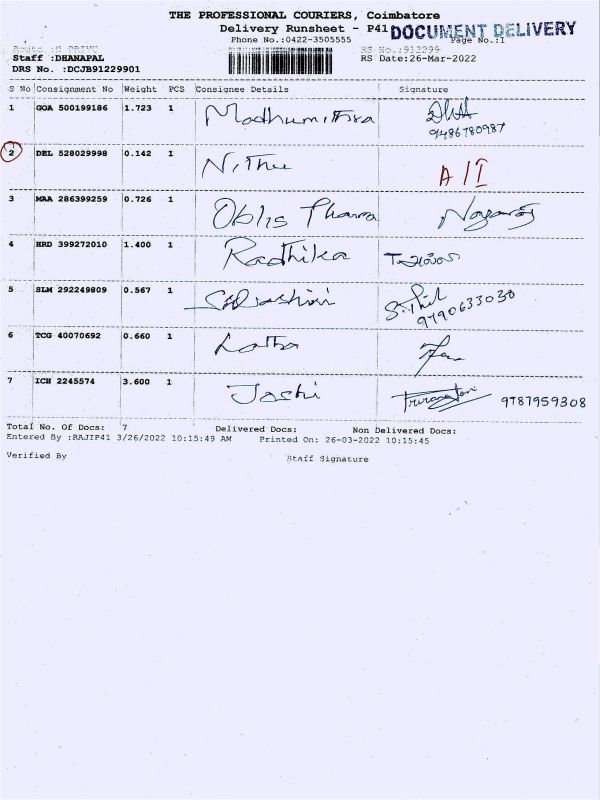 THE PROFESSIONAL COURIERS, Coimbatore
Delivery Runsheet - P41 DOCUMENT DELIVERY
Phone No.:0422-3505555 Page No.:1
RS No.:912299
Staff :DHANAPAL RS Date:26-Mar-2022
DRS No. :DCJB91229901
S No Consignment No Weight PCS Consignee Details Signature
1 GOA 500199186 1.723 1 Madhumithra
9486780987
2 DEL 528029998 0.142 1 Nithu A/I
3 MAA 286399259 0.726 1 Oblis Nagaraj
4 HRD 399272010 1.400 1 Radhika
5 SLM 292249809 0.567 1
9790633038
6 TCG 40070692 0.660 1 Latha
7 ICH 2245574 3.600 1 Joshi 9787959308
Total No. Of Docs: 7 Delivered Docs: Non Delivered Docs:
Entered By :RAJIP41 3/26/2022 10:15:49 AM Printed On: 26-03-2022 10:15:45
Verified By Staff Signature